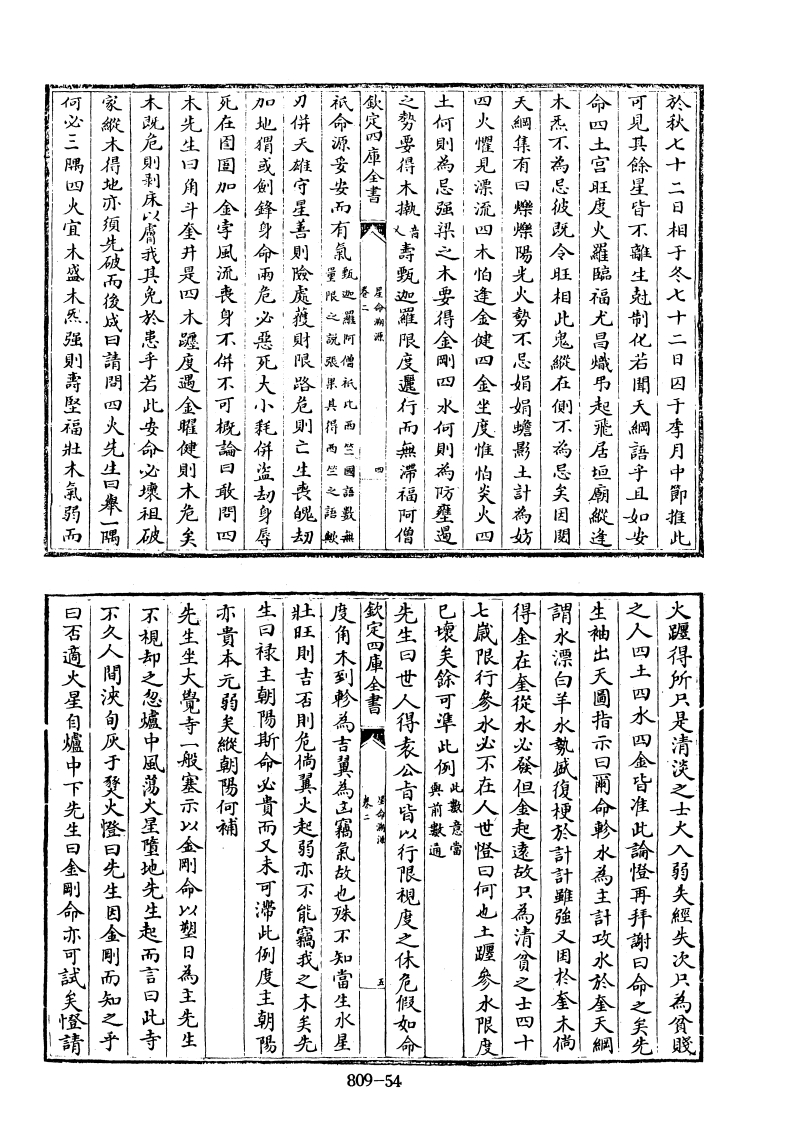 於秋七十二日相于冬七十二日囚于季月中節推此
可見其餘星皆不離生尅制化若聞天綱語乎且如安
命四土宮旺度火羅臨福尤昌熾弔起飛居垣廟縱逢
木炁不為忌彼既令旺相此鬼縱在側不為忌矣因閱
天綱集有曰爍爍陽光火勢不忌娟娟蟾影土計為妨
四火懼見漂流四木怕逢金健四金坐度惟怕炎火四
土何則為忌强梁之木要得金剛四水何則為防壅遏
之勢要得木揪
音
又
壽甄迦羅限度邐行而無滯福阿僧
欽定四庫全書
星命溯源
卷二
四
祇命源妥安而有氣
甄迦羅阿僧祇比西竺國語數無
量限之說張果其得西竺之語歟
刃併天雄守星善則險處獲財限路危則亡生喪魄刼
加地猬或劍鋒身命兩危必惡死大小耗併盜刼身辱
死在囹圄加金孛風流喪身不併不可概論曰敢問四
木先生曰角斗奎井是四木躔度遇金曜健則木危矣
木既危則剥床以膚我其免於患乎若此安命必壞祖破
家縱木得地亦須先破而後成曰請問四火先生曰舉一隅
何必三隅四火宜木盛木炁强則壽堅福壯木氣弱而
火躔得所只是清淡之士火入弱失經失次只為貧賤
之人四土四水四金皆准此論憕再拜謝曰命之矣先
生袖出天圖指示曰爾命軫水為主計攻水於奎天綱
謂水漂白羊水埶盛復梗於計計雖强又困於奎木倘
得金在奎從水必發但金起遠故只為清貧之士四十
七歲限行參水必不在人世憕曰何也土躔參水限度
已壞矣餘可準此例
此數意當
與前數通
先生曰世人得袁公旨皆以行限視度之休危假如命
欽定四庫全書
星命溯源
卷二
五
度角木到軫為吉翼為凶竊氣故也殊不知當生水星
壯旺則吉否則危倘翼火起弱亦不能竊我之木矣先
生曰禄主朝陽斯命必貴而又未可滯此例度主朝陽
亦貴本元弱矣縱朝陽何補
先生坐大覺寺一般塞示以金剛命以塑日為主先生
不視却之忽爐中風蕩火星墮地先生起而言曰此寺
不久人間浹旬灰于燹火憕曰先生因金剛而知之乎
曰否適火星自爐中下先生曰金剛命亦可試矣憕請
809-54